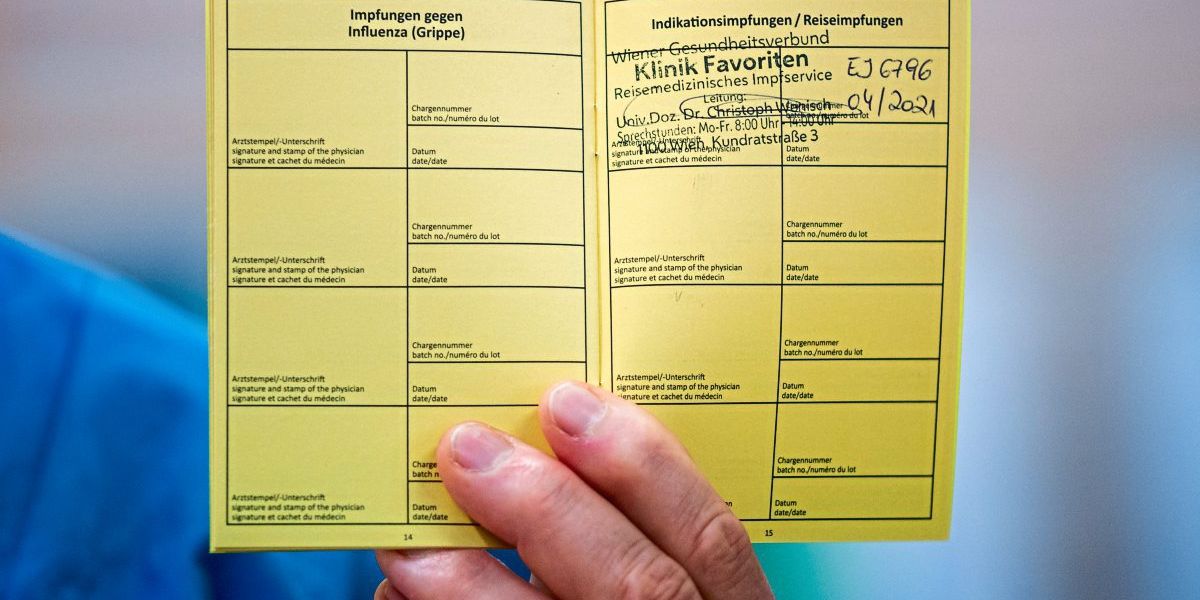 Impfungen gegen
Influenza (Grippe)
Chargennummer
batch no./numéro du lot
Arztstempel/-Unterschrift
signature and stamp of the physician
signature et cachet du médecin
Datum
date/date
Chargennummer
batch no./numéro du lot
Arztstempel/-Unterschrift
signature and stamp of the physician
signature et cachet du médecin
Datum
date/date
Chargennummer
batch no./numéro du lot
Arztstempel/-Unterschrift
signature and stamp of the physician
signature et cachet du médecin
Datum
date/date
Charge
batch n
Arztstempel/-Unterschrift
signature and stamp of the physician
signature et cachet du médecin
Datum
date/date
14
Indikationsimpfungen / Reiseimpfungen
Wiener Gesundheitsverbund
Klinik Favoriten
Reisemedizinisches Impfservice
Leitung:
Univ.Doz. Dr. Christoph Wenisch
Sprechstunden: Mo-Fr. 8:00 Uhr - 14:00 Uhr
1100 Wien, Kundratstraße 3
EJ 6796
04/2021
Chargennummer
batch no./numéro du lot
Arztstempel/-Unterschrift
signature and stamp of the physician
signature et cachet du médecin
Datum
date/date
Chargennummer
batch no./numéro du lot
Arztstempel/-Unterschrift
signature and stamp of the physician
signature et cachet du médecin
Datum
date/date
Chargennummer
batch no./numéro du lot
Arztstempel/-Unterschrift
signature and stamp of the physician
signature et cachet du médecin
Datum
date/date
Chargennummer
batch no./numéro du lot
Datum
date/date
15